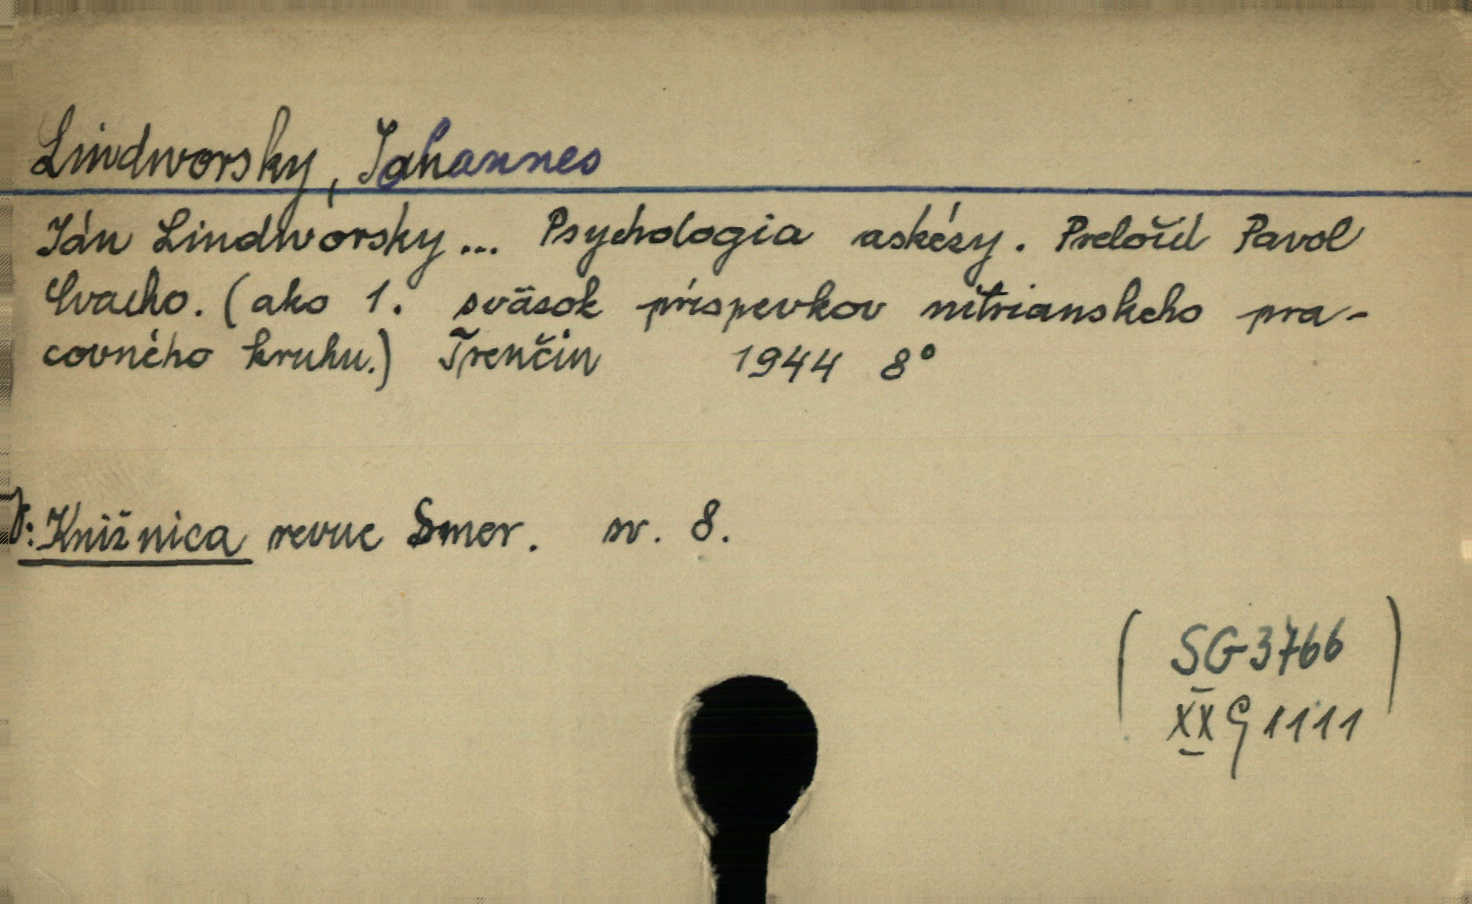 Lindworsky, Johannes
Ján Lindworsky... Psychologia askézy. Preložil Pavol
Čvacho. (ako 1. sväzok príspevkov nitrianskeho pra-
covného kruhu.) Trenčín 1944 8°
V: Knižnica revue Smer. sv. 8.
( SG 3766 )
XX G 1111